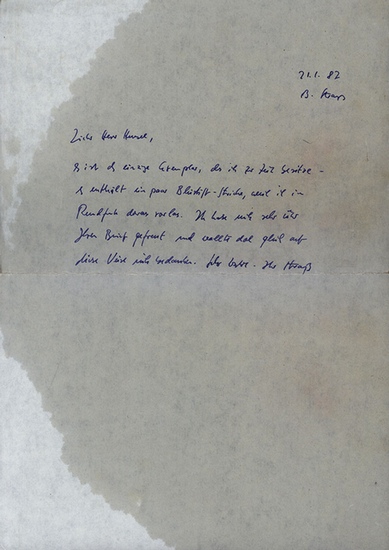 21.1.82
B. Strauß
Lieber Herr
es ist das einzige Exemplar, das ich zur Zeit besitze –
es enthält ein paar Bleistift-Striche, weil ich im
Rundfunk daraus vorlas. Ich habe mich sehr über
Ihren Brief gefreut und wollte das gleich auf
diese Weise Ihr Strauß